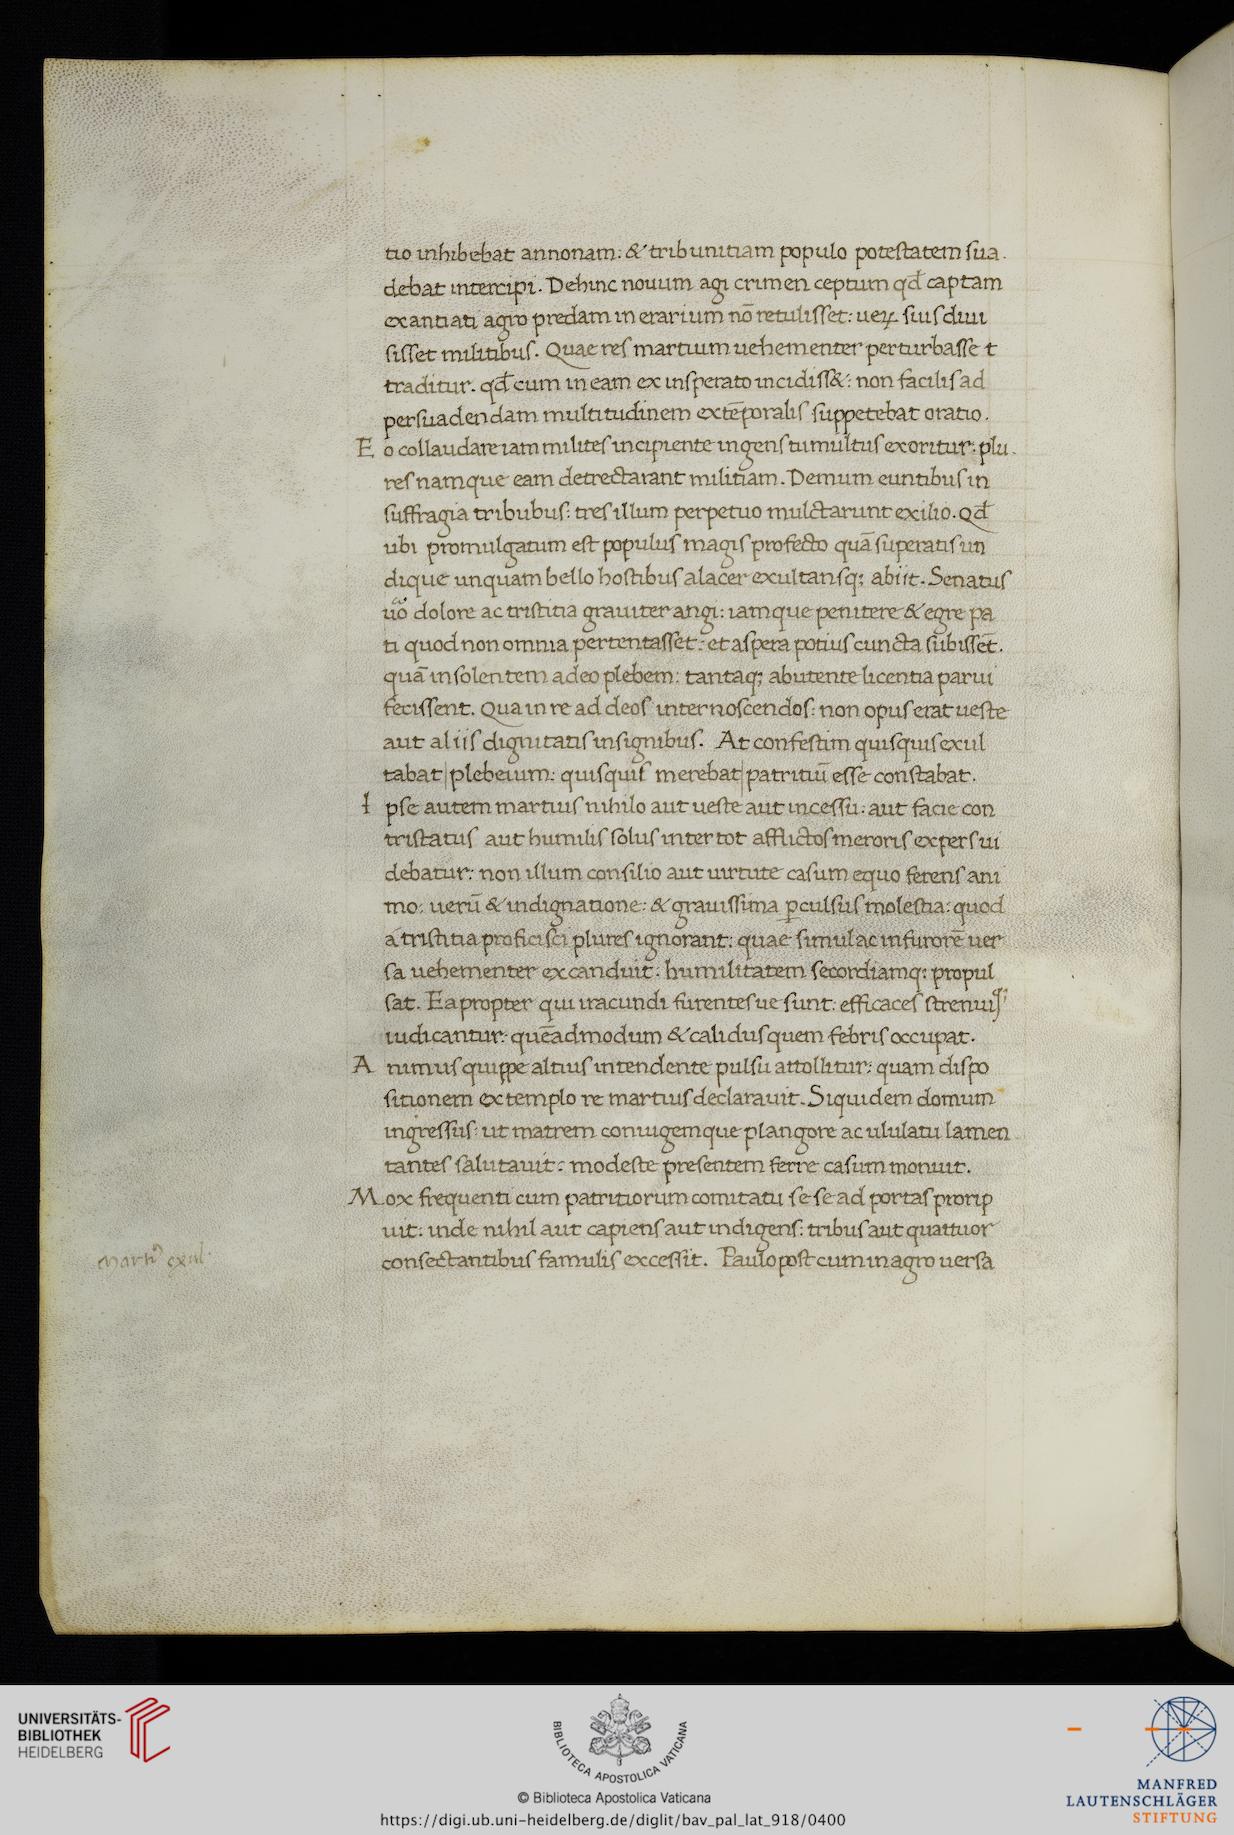 tio inhibebat annonam: & tribunitiam populo potestatem sua
debat intercipi. Dehinc nouum agi crimen ceptum qđ captam
ex antiati agro predam in erarium nō retulisset: ueꝝ suis diui
sisset militibus. Quae res martium uehementer perturbasse t
traditur. qđ cum in eam ex insperato incidiss&: non facilis ad
persuadendam multitudinem extēporalis suppetebat oratio.
Eo collaudare iam milites incipiente ingens tumultus exoritur: plu
res namque eam detrectarant militiam. Demum euntibus in
suffragia tribubus: tres illum perpetuo mulctarunt exilio. Qđ
ubi promulgatum est populus magis profecto quā superatis un
dique unquam bello hostibus alacer exultansq; abiit. Senatus
uo dolore ac tristitia grauiter angi: iamque penitere & egre pa
ti quod non omnia pertentasset: et aspera potius cuncta subissēt.
quā insolentem adeo plebem: tantaq; abutente licentia parui
fecissent. Qua in re ad deos internoscendos: non opus erat ueste
aut aliis dignitatis insignibus. At confestim quisquis exul
tabat plebeium: quisquis merebat patritiū esse constabat.
Ipse autem martius nihilo aut ueste aut incessu: aut facie con
tristatus aut humilis solus inter tot afflictos meroris expers ui
debatur: non illum consilio aut uirtute casum equo ferens ani
mo: uerū & indignatione: & grauissima ꝑculsus molestia: quod
a tristitia proficisci plures ignorant: quae simul ac in furorē uer
sa uehementer excanduit: humilitatem secordiamq; propul
sat. Eapropter qui iracundi furentes ue sunt: efficaces strenuiq;
iudicantur: quēadmodum & calidus quem febris occupat.
Animus quippe altius intendente pulsu attollitur: quam dispo
sitionem extemplo re martius declarauit. Siquidem domum
ingressus: ut matrem coniugemque plangore ac ululatu lamen
tantes salutauit: modeste presentem ferre casum monuit.
Mox frequenti cum patritiorum comitatu se se ad portas prorip
uit: inde nihil aut capiens aut indigens: tribus aut quattuor
Martiꝰ exul
consectantibus famulis excessit. Paulo post cum in agro uersa
UNIVERSITÄTS-
BIBLIOTHEK
HEIDELBERG
BIBLIOTECA APOSTOLICA VATICANA
© Biblioteca Apostolica Vaticana
https://digi.ub.uni-heidelberg.de/diglit/bav_pal_lat_918/0400
MANFRED
LAUTENSCHLÄGER
STIFTUNG